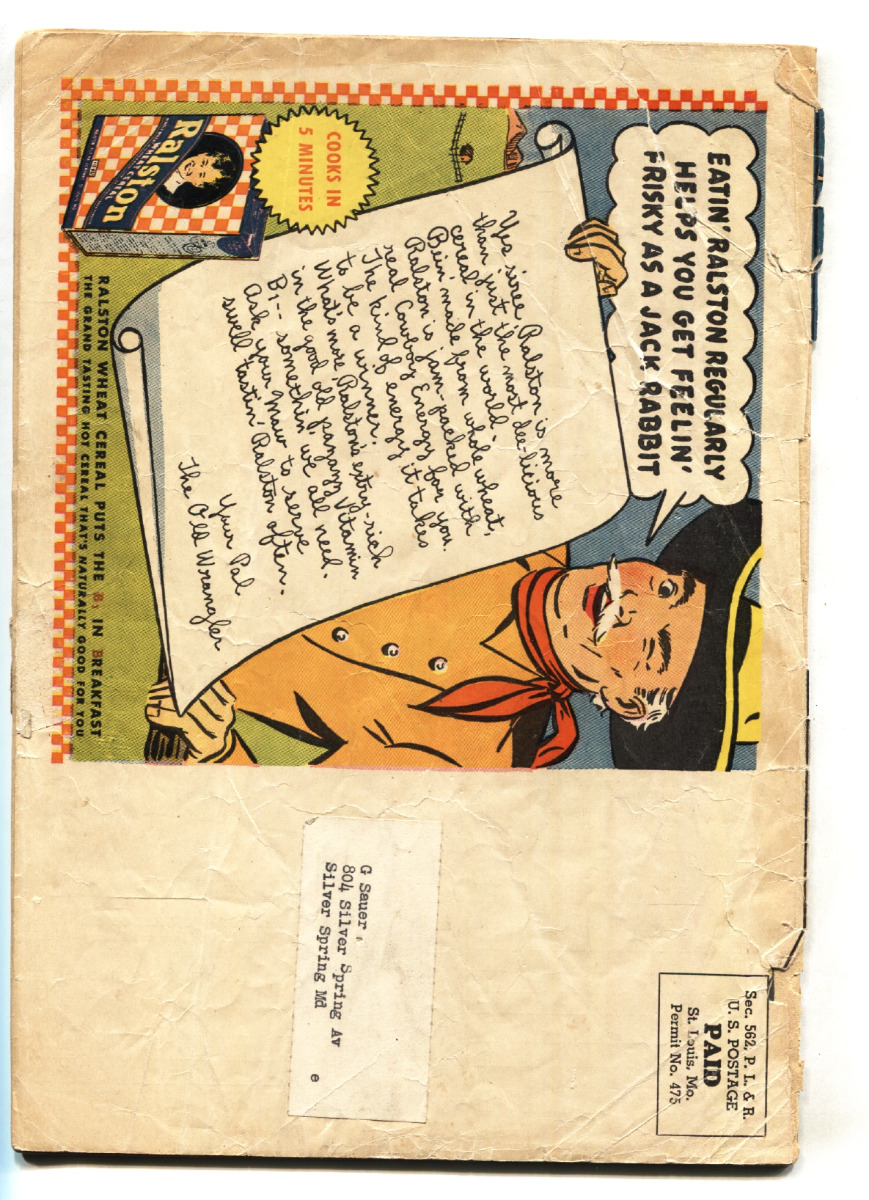 EATIN' RALSTON REGULARLY
HELPS YOU GET FEELIN'
FRISKY AS A JACK RABBIT
COOKS IN
5 MINUTES
Ralston
WHEAT CEREAL
Yes siree Ralston is more
than just the most de-licious
cereal in the world-
Bein' made from whole wheat,
Ralston is jam-packed with
real Cowboy Energy for you.
The kind of energy it takes
to be a winner.
What's more, Ralston's extry-rich
in the good old pazazzy Vitamin
B₁-- somethin' we all need.
Ask your Maw to serve
swell tastin' Ralston often.
Your Pal
The Old Wrangler
RALSTON WHEAT CEREAL PUTS THE B₁ IN BREAKFAST
THE GRAND TASTING HOT CEREAL THAT'S NATURALLY GOOD FOR YOU
Sec. 562, P. L. & R.
U. S. POSTAGE
PAID
St. Louis, Mo.
Permit No. 475
G Sauer,
804 Silver Spring Av
Silver Spring Md
e